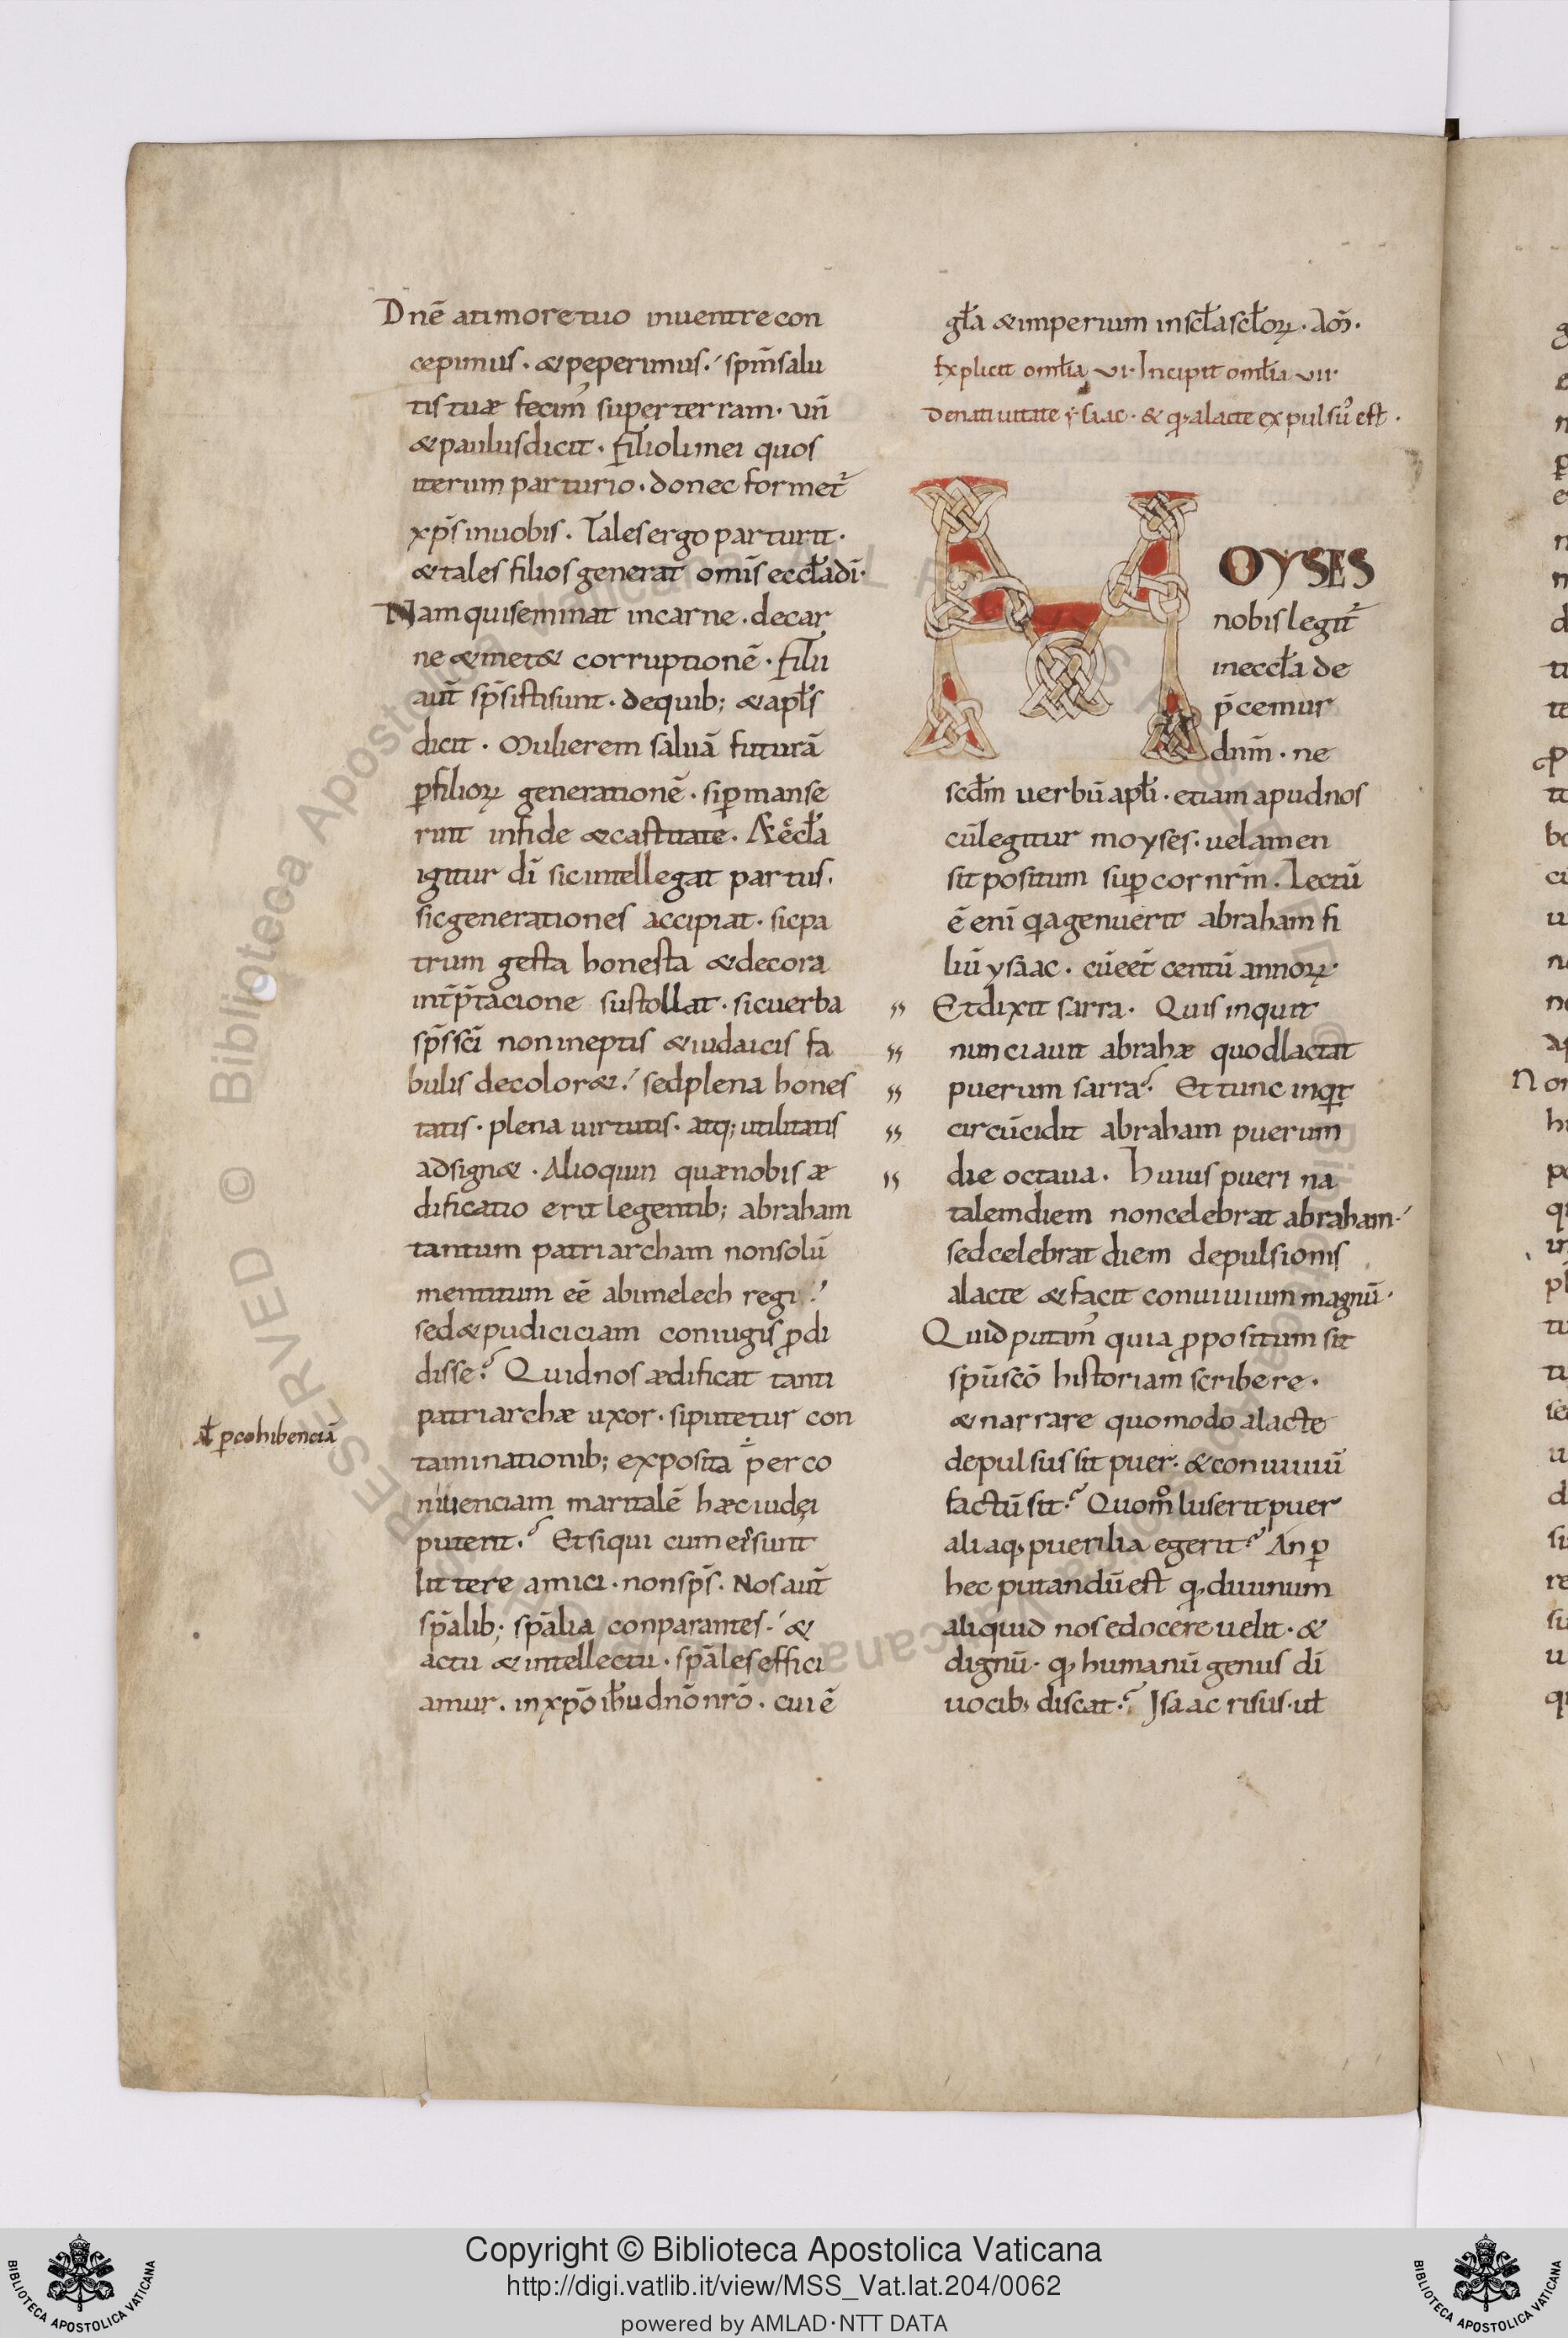 Dnē atimore tuo inuentre con
cepimus · & peperimus · sp̄m salu
tis tuæ fecim᾿ super terram · un̄
& paulus dicit · filioli mei quos
iterum parturio · donec formet᷑
xp̄s in uobis · Tales ergo parturit ·
& tales filios generat omīs eccl̄a dī ·
Nam qui seminat in carne · de car
ne & met& corruptionē · filii
aut̄ sp̄s isti sunt · de quib; & apl̄s
dicit · Mulierem saluā futurā
ꝑ filioꝝ generationē · si ꝑmanse
rint in fide & castitate · Æccl̄a
igitur dī sic intellegat partus ·
sic generationes accipiat · sic pa
trum gesta honesta & decora
int̄p̄tacione sustollat · sic uerba
sp̄s sc̄i non ineptis & iudaicis fa
bulis decolor& · sed plena hones
tatis · plena uirtutis · atq; utilitatis
adsign& · Alioquin quæ nobis æ
dificatio erit legentib; abraham
tantum patriarcham non solū
mentitum eē abimelech regi ·
sed & pudiciciam coniugis ꝓdi
disse? Quid nos ædificat tanti
patriarchæ uxor · si putetur con
taminationib; exposita per co
niuenciam maritalē hæc iudęi
putent? Et si qui cum eis sunt
littere amici · non sp̄s · Nos aut̄
sp̄alib; sp̄alia conparantes · &
actu & intellectu · sp̄ales effici
amur · in xp̄o ih̄u dn̄o nr̄o · cui ē
Al̄ ꝑ cohibenciā
gl̄a & imperium in scl̄a scl̄oꝝ · Am̄ ·
Explicit omel̄ia VI · Incipit omel̄ia VII ·
De natiuitate ysaac · & qđ a lacte expulsus est ·
MOYSES
nobis legit᷑
in eccl̄a de
p̄cemur
dn̄m · ne
scd̄m uerbū apl̄i · etiam apud nos
cū legitur moyses · uelamen
sit positum suꝑ cor nr̄m · Lectū
ē enī qia genuerit abraham fi
liū ysaac · cū eēt centū annoꝝ ·
Et dixit sarra · Quis inquit
nunciauit abrahæ quod lactat
puerum sarra? Et tunc inqt
circūcidit abraham puerum
die octaua · huius pueri na
talem diem non celebrat abraham ·
sed celebrat diem depulsionis
a lacte & facit conuiuium magnū ·
Quid putam᾿ quia ꝓpositum sit
sp̄ui sc̄o historiam scribere ·
& narrare quomodo a lacte
depulsus sit puer · & conuiuiū
factū sit? Quom̊ luserit puer
aliaq; puerilia egerit? An ꝑ
hec putandū est qđ diuinum
aliquid nos edocere uelit · &
dignū · qđ humanū genus dī
uocib; discat? Isaac risus · ul̄
Copyright © Biblioteca Apostolica Vaticana
http://digi.vatlib.it/view/MSS_Vat.lat.204/0062
powered by AMLAD·NTT DATA
BIBLIOTECA APOSTOLICA VATICANA
BIBLIOTECA APOSTOLICA VATICANA